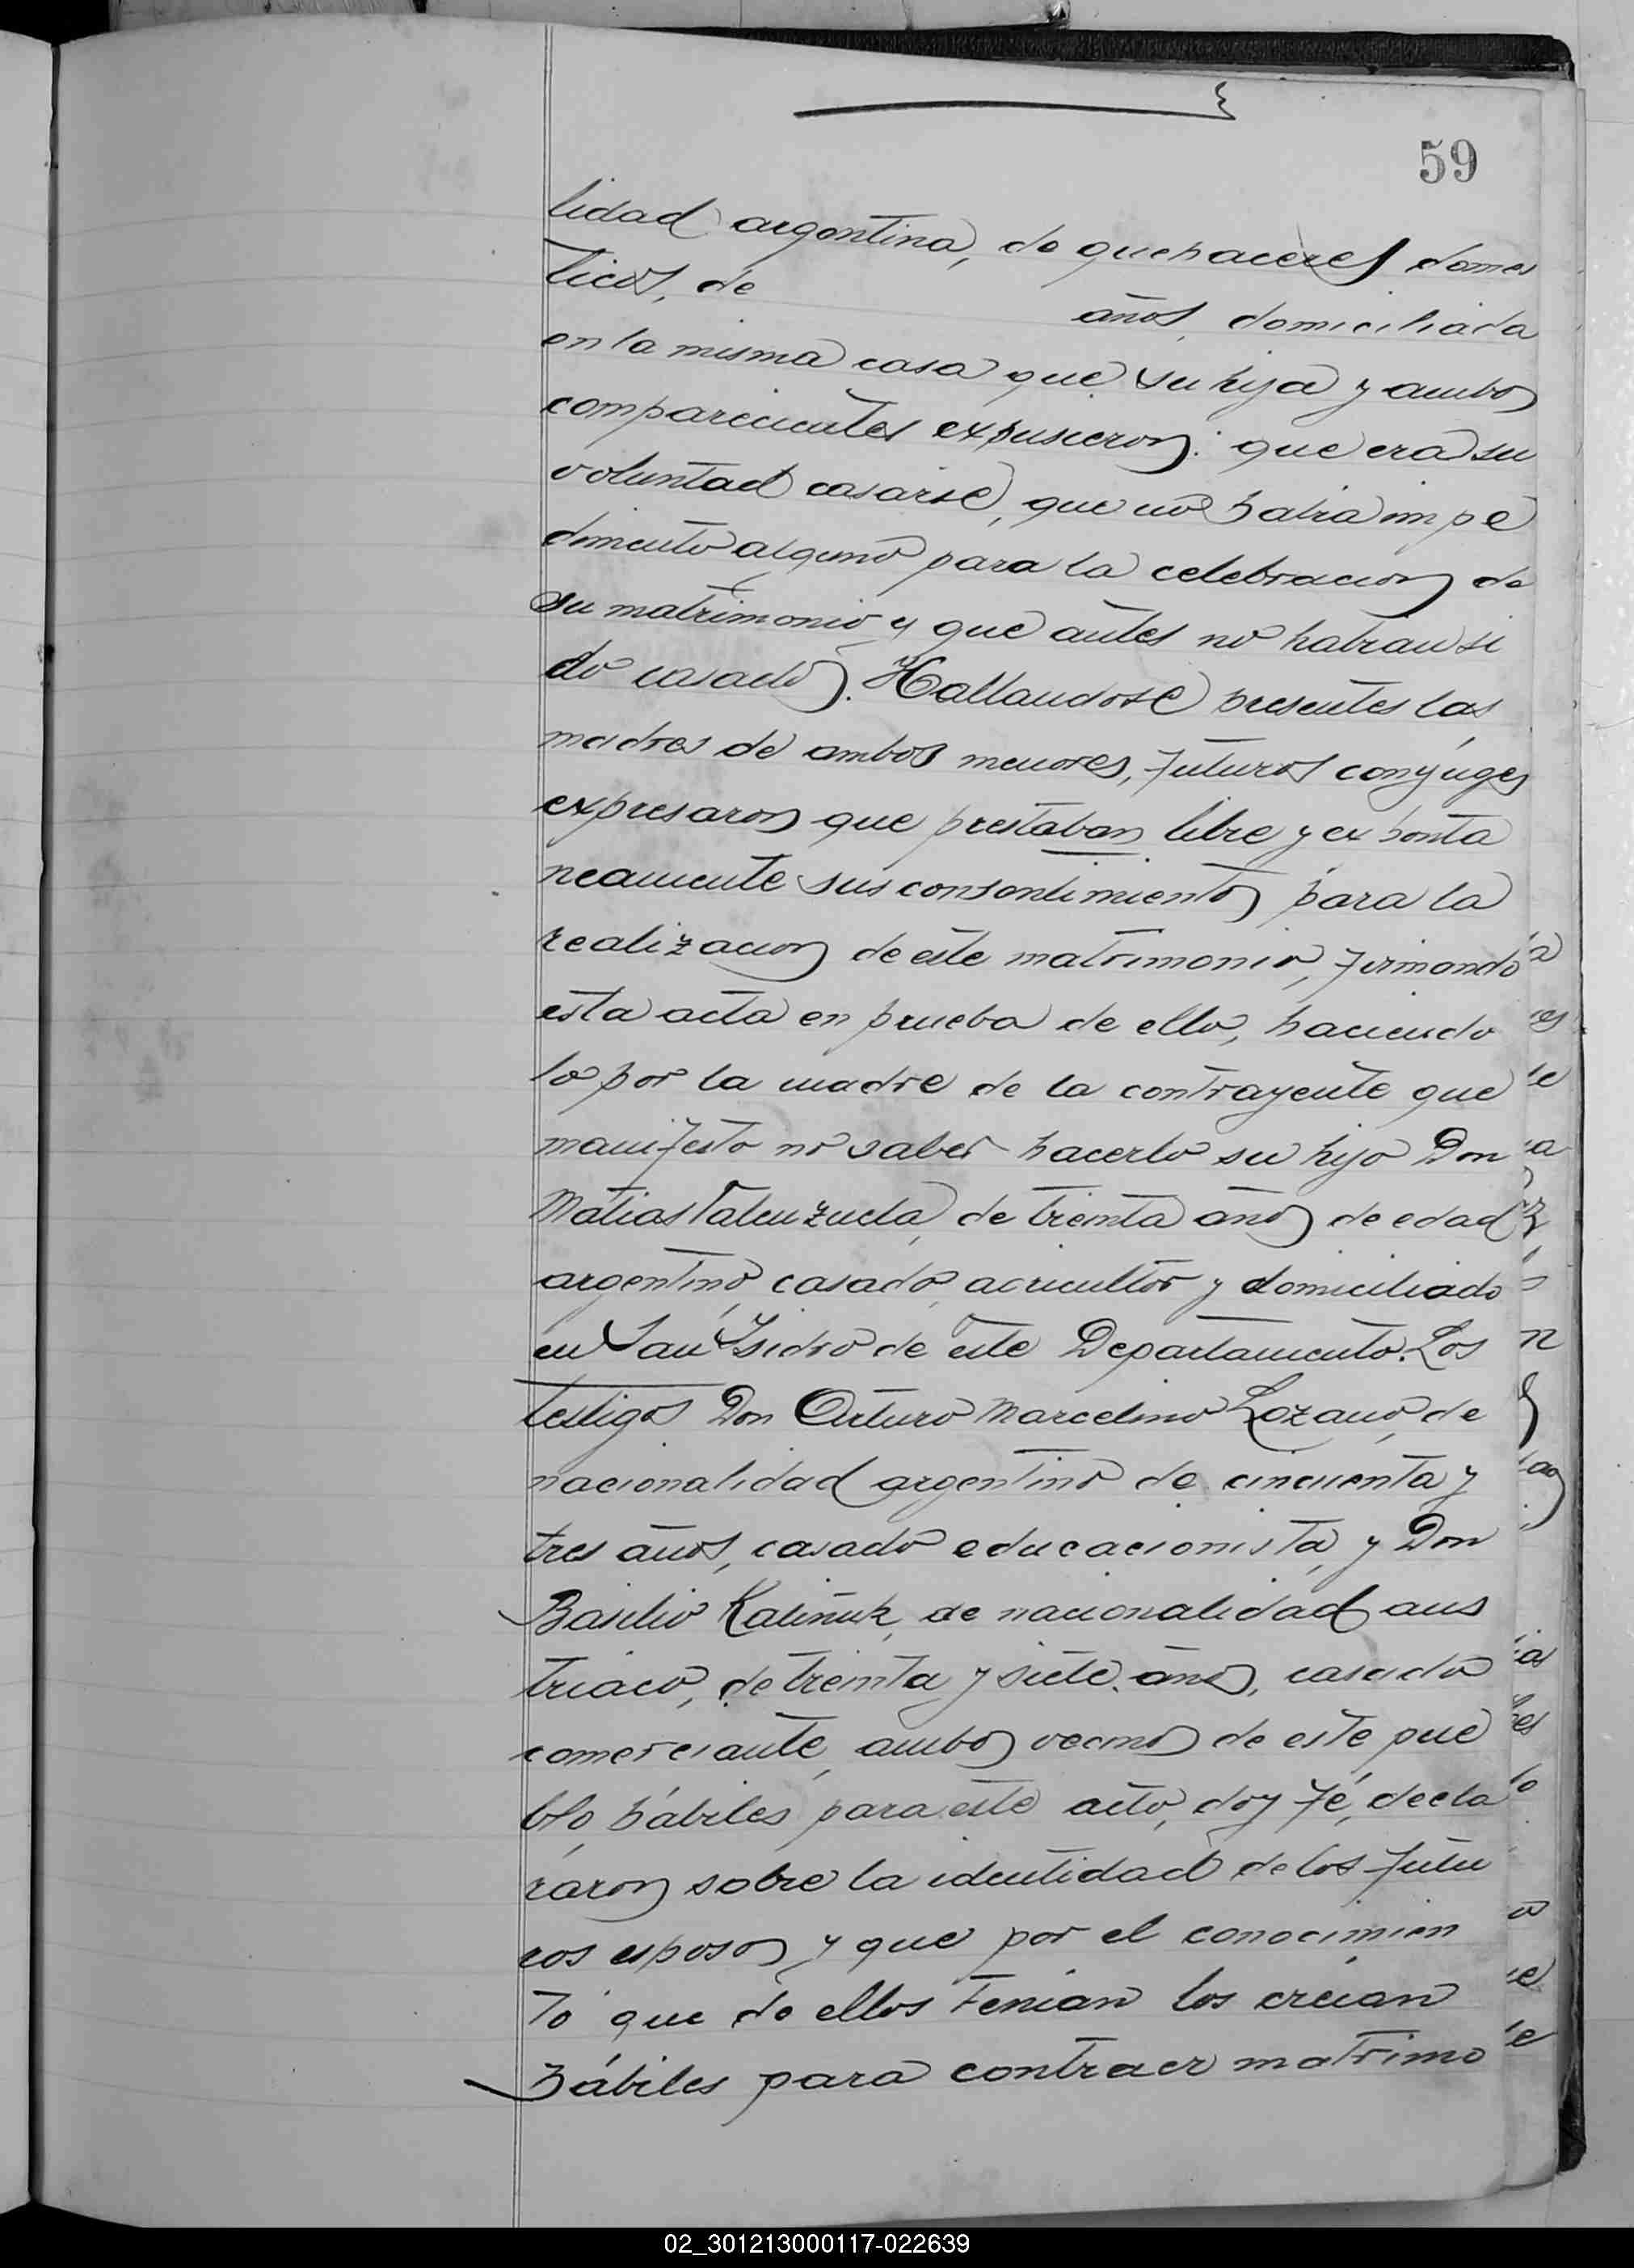 59
lidad argentina, de quehaceres domes
ticos, de años, domiciliada
en la misma casa que su hija y ambos
comparecientes expusieron: que era su
voluntad casarse, que no habia impe
dimento alguno para la celebracion de
su matrimonio y que antes no habian si
do casados. Hallandose presentes las
madres de ambos menores, futuros conyuges
expresaron que prestaban libre y exponta
neamente sus consentimientos para la
realizacion de este matrimonio, firmando
esta acta en prueba de ello, haciendo
lo por la madre de la contrayente que
manifesto no saber hacerlo su hijo Don
Matias Valenzuela, de treinta años de edad
argentino, casado, acricultor y domiciliado
en San Isidro de este Departamento. Los
testigos Don Arturo Marcelino Lozano, de
nacionalidad argentino de cincuenta y
tres años, casado educacionista, y Don
Basilio Kaliñuk, de nacionalidad aus
triaco, de treinta y siete años, casado
comerciante, ambos vecinos de este pue
blo, hábiles para este acto, doy fé, decla
raron sobre la identidad de los futu
ros esposos y que por el conocimien
to que de ellos tenían los creían
hábiles para contraer matrimo
02_301213000117-022639